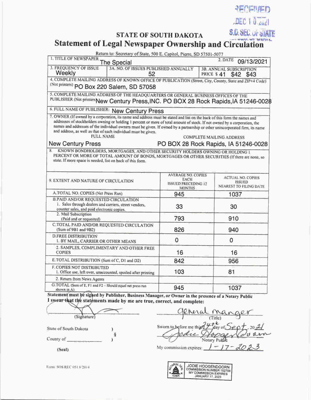 RECEIVED
DEC 1 2021
S.D. SEC. OF STATE
STATE OF SOUTH DAKOTA
Statement of Legal Newspaper Ownership and Circulation
Return to: Secretary of State, 500 E. Capitol, Pierre, SD 57501-5077
1. TITLE OF NEWSPAPER The Special
2. DATE 09/13/2021
3. FREQUENCY OF ISSUE Weekly
3A. NO. OF ISSUES PUBLISHED ANNUALLY 52
3B. ANNUAL SUBSCRIPTION PRICE $ 41 $42 $43
4. COMPLETE MAILING ADDRESS OF KNOWN OFFICE OF PUBLICATION (Street, City, County, State and ZIP+4 Code)
(Not printers) PO Box 220 Salem, SD 57058
5. COMPLETE MAILING ADDRESS OF THE HEADQUARTERS OF GENERAL BUSINESS OFFICES OF THE
PUBLISHER (Not printers) New Century Press,INC. PO BOX 28 Rock Rapids,IA 51246-0028
6. FULL NAME OF PUBLISHER: New Century Press
7. OWNER (If owned by a corporation, its name and address must be stated and also on the back of this form the names and
addresses of stockholders owning or holding 1 percent or more of total amount of stock. If not owned by a corporation, the
names and addresses of the individual owners must be given. If owned by a partnership or other unincorporated firm, its name
and address, as well as that of each individual must be given.
FULL NAME
COMPLETE MAILING ADDRESS
New Century Press
PO BOX 28 Rock Rapids, IA 51246-0028
8. KNOWN BONDHOLDERS, MORTGAGES, AND OTHER SECURITY HOLDERS OWNING OR HOLDING 1
PERCENT OR MORE OF TOTAL AMOUNT OF BONDS, MORTGAGES OR OTHER SECURITIES (If there are none, so
state. If more space is needed, list on back of this form.
9. EXTENT AND NATURE OF CIRCULATION
AVERAGE NO. COPIES EACH ISSUED PRECEDING 12 MONTHS
ACTUAL NO. COPIES ISSUED NEAREST TO FILING DATE
A. TOTAL NO. COPIES (Net Press Run) 945 1037
B. PAID AND/OR REQUESTED CIRCULATION
1. Sales through dealers and carriers, street vendors,
counter sales, and paid electronic copies. 33 30
2. Mail Subscription
(Paid and/or requested) 793 910
C. TOTAL PAID AND/OR REQUESTED CIRCULATION
(Sum of 9B1 and 9B2) 826 940
D. FREE DISTRIBUTION
1. BY MAIL, CARRIER OR OTHER MEANS 0 0
2. SAMPLES, COMPLIMENTARY AND OTHER FREE
COPIES 16 16
E. TOTAL DISTRIBUTION (Sum of C, D1 and D2) 842 956
F. COPIES NOT DISTRIBUTED
1. Office use, left over, unaccounted, spoiled after printing 103 81
2. Return from News Agents
G. TOTAL (Sum of E, F1 and F2 - Should equal net press run
shown in A) 945 1037
Statement must be signed by Publisher, Business Manager, or Owner in the presence of a Notary Public
I swear that the statements made by me are true, correct, and complete:
general manager
(Signature)
(Title)
State of South Dakota
County of
(Seal)
Sept. 21
Notary Public
My commission expires 1-17-2023
JODIE HOUSENDOORN